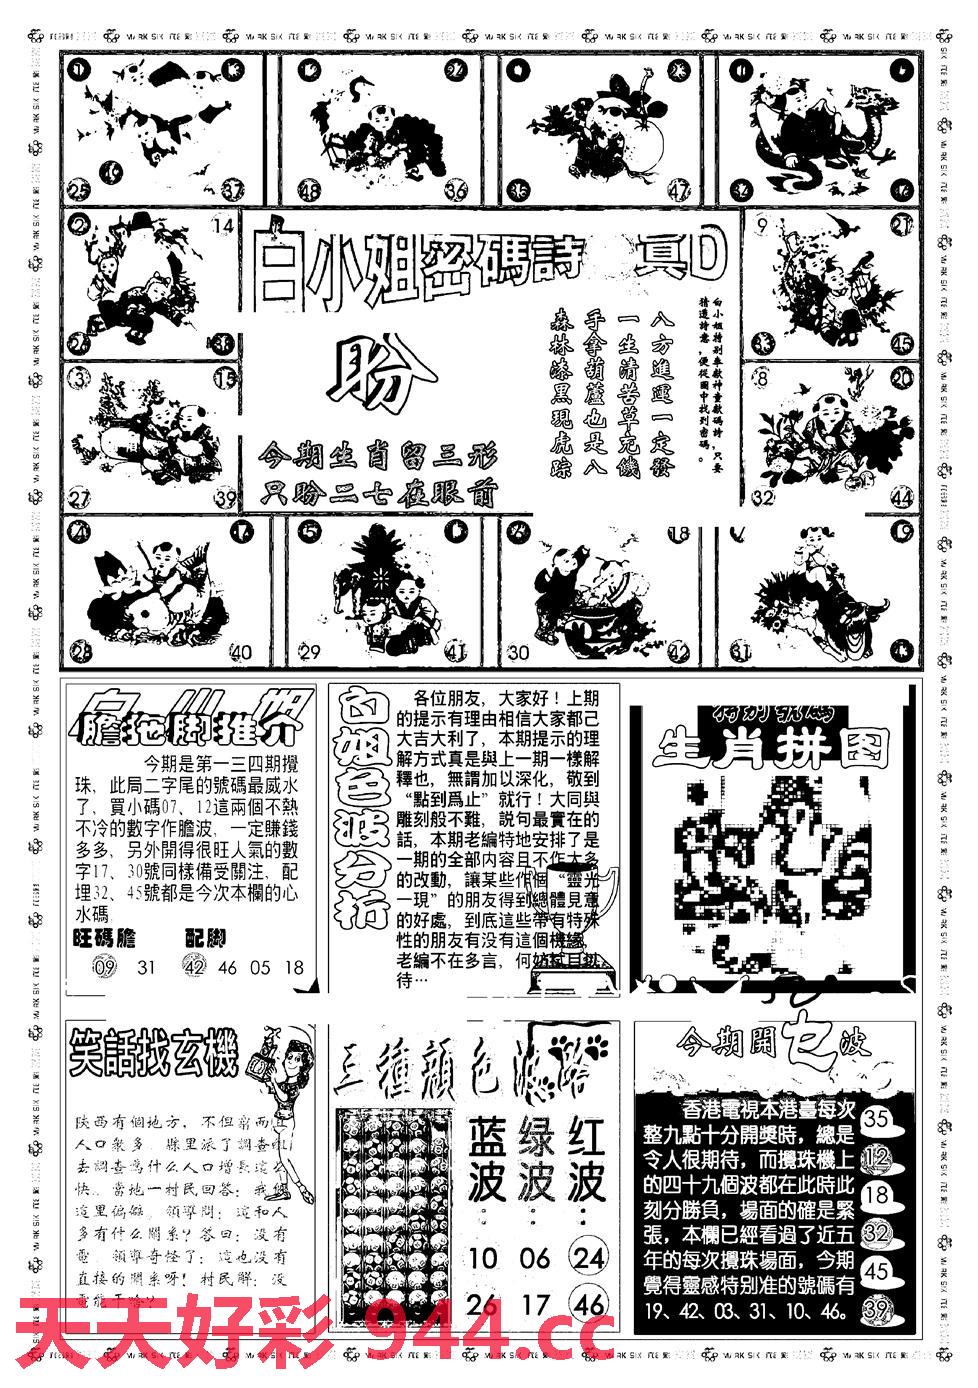 25
37
48
36
35
47
14
白小姐密碼詩
真D
9
21
盼
今期生肖留三形
只盼二七在眼前
白小姐特别奉献神童献碼詩,只要
猜透詩意,便從圖中找到密碼。
八方進運一定發
一生清苦草充饑
手拿葫蘆也是八
森林漆黑現虎踪
33
45
3
15
8
20
27
39
32
44
18
28
40
29
41
30
42
31
膽拖脚推介
今期是第一三四期攪
珠，此局二字尾的號碼最威水
了，買小碼07、12這兩個不熱
不冷的數字作膽波，一定賺錢
多多，另外開得很旺人氣的數
字17、30號同樣備受關注，配
埋32、45號都是今次本欄的心
水碼
旺碼膽 配脚
09 31 42 46 05 18
白姐色波分析
各位朋友，大家好！上期
的提示有理由相信大家都己
大吉大利了，本期提示的理
解方式真是與上一期一樣解
釋也，無謂加以深化，敬到
“點到爲止”就行！大同與
雕刻般不難，説句最實在的
話，本期老編特地安排了是
一期的全部内容且不作太多
的改動，讓某些作個“靈光
一現”的朋友得到總體見意
的好處，到底這些帶有特殊
性的朋友有没有這個機緣，
老編不在多言，何妨拭目以
待…
特别號碼
生肖拼图
笑話找玄機
陕西有個地方，不但窮而且
人口衆多，縣里派了調查組
去調查爲什么人口增長這么
快。當地一村民回答：我們
這里偏僻。領導問：這和人
多有什么關系？答曰：没有
電。領導奇怪了：這也没有
直接的關系呀！村民解：没
電能干啥？
三種顔色波路
蓝波: 绿波: 红波:
10 06 24
26 17 46
今期開乜波
香港電視本港臺每次
整九點十分開獎時，總是
令人很期待，而攪珠機上
的四十九個波都在此時此
刻分勝負，場面的確是緊
張，本欄已經看過了近五
年的每次攪珠場面，今期
覺得靈感特别准的號碼有
19、42、03、31、10、46。
35
12
18
32
45
39
天天好彩 944.cc